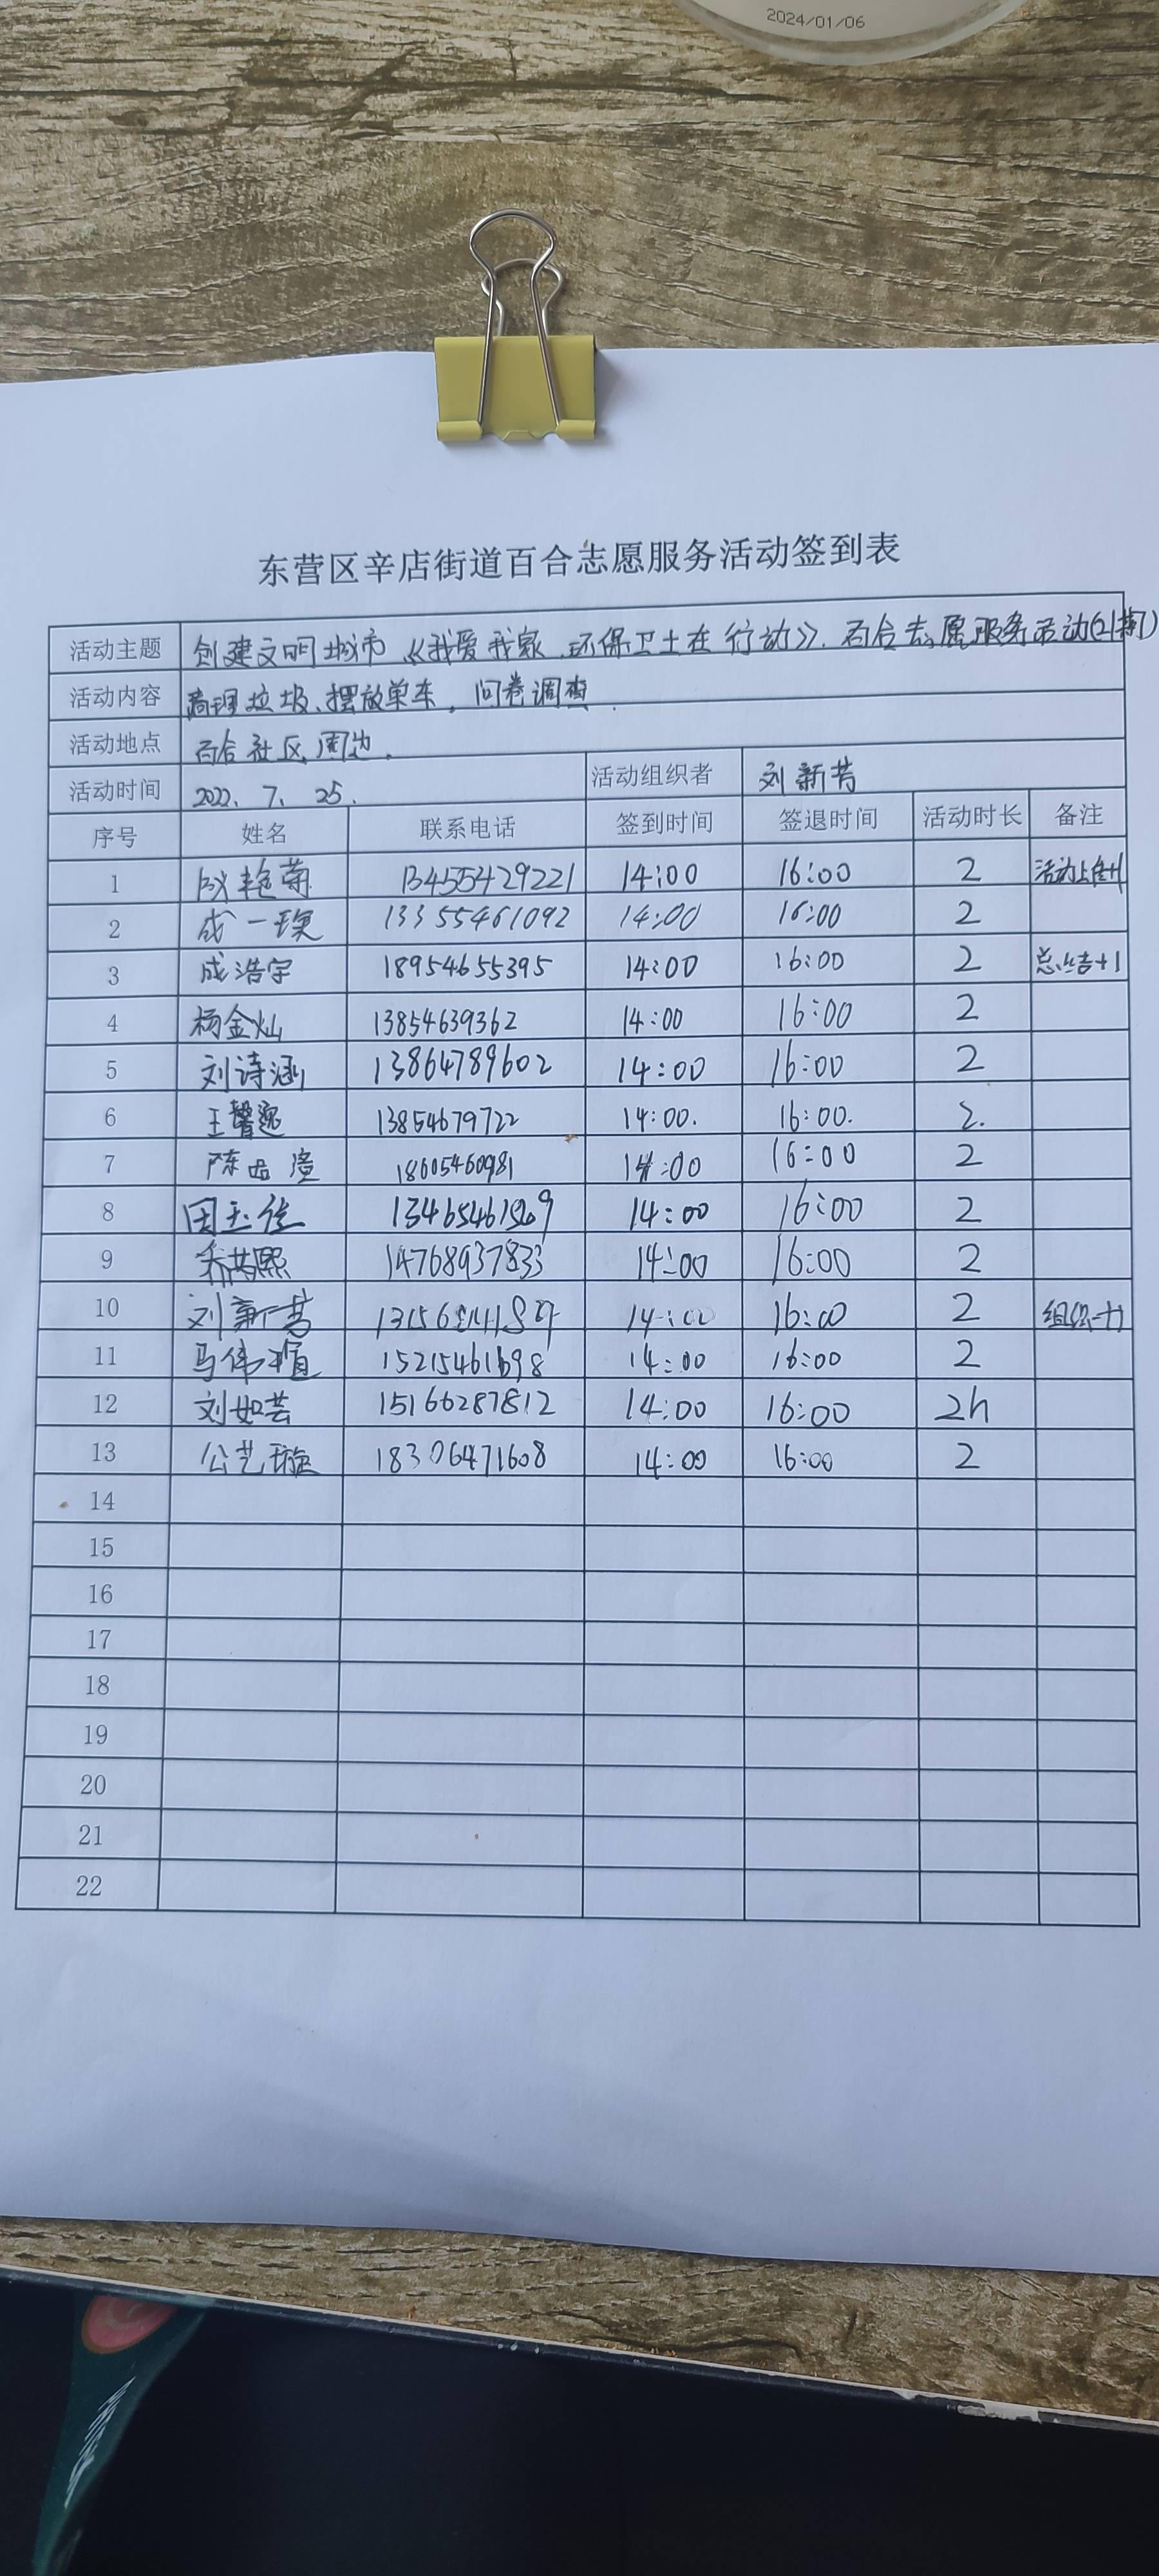 2024/01/06
东营区辛店街道百合志愿服务活动签到表
活动主题 创建文明城市《我爱我家.环保卫士在行动》.百合志愿服务活动(21期)
活动内容 清理垃圾、摆放单车。问卷调查.
活动地点 百合社区周边.
活动时间 2022、7、25. 活动组织者 刘新芳
序号 姓名 联系电话 签到时间 签退时间 活动时长 备注
1 成艳菊 13455429221 14:00 16:00 2 活动上传+1
2 成一瑛 13355461092 14:00 16:00 2
3 成浩宇 18954655395 14:00 16:00 2 总结+1
4 杨金灿 13854639362 14:00 16:00 2
5 刘诗涵 13864789602 14:00 16:00 2
6 王馨逸 13854679722 14:00. 16:00. 2.
7 陈 18605460981 14:00 16:00 2
8 田玉佳 14:00 16:00 2
9 乔 熙 14768937833 14:00 16:00 2
10 刘新芳 14:00 16:00 2 组织+1
11 马伟 14:00 16:00 2
12 刘如芸 15166287812 14:00 16:00 2h
13 公艺璇 18306471608 14:00 16:00 2
14
15
16
17
18
19
20
21
22